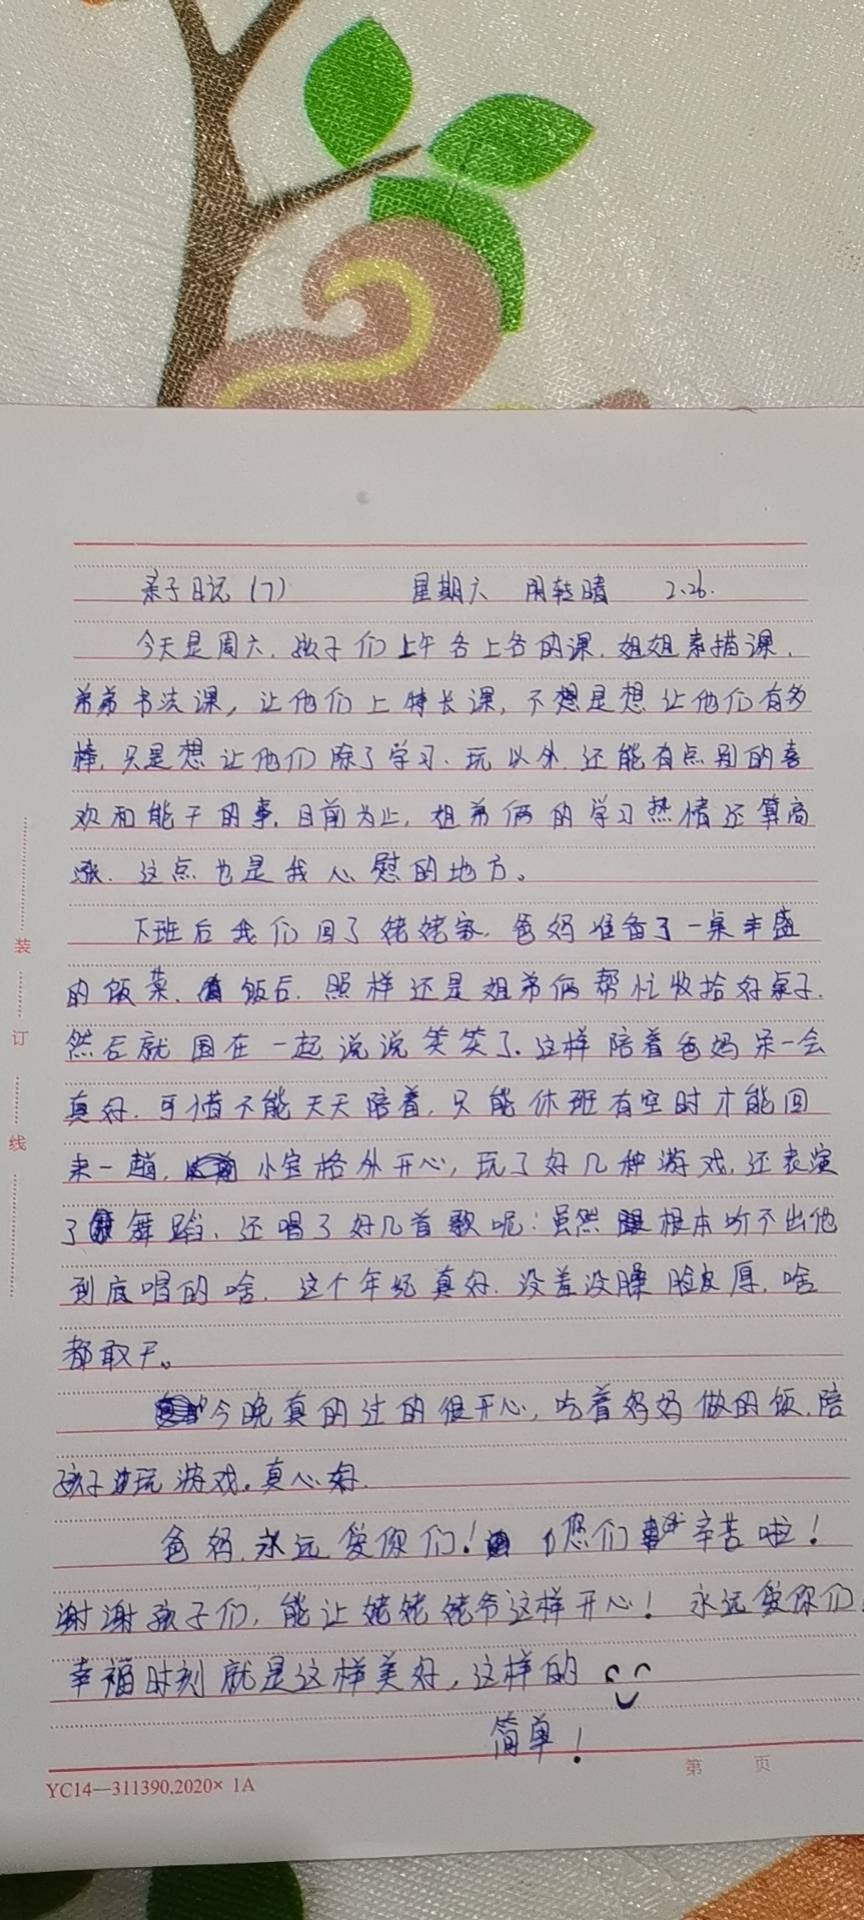 亲子日记（7） 星期六 阴转晴 2.26.
今天是周六，孩子们上午各上各的课，姐姐素描课，
弟弟书法课，让他们上特长课，不想是想让他们有多
棒，只是想让他们除了学习、玩以外，还能有点别的喜
欢和能干的事，目前为止，姐弟俩的学习热情还算高
涨，这点也是我心慰的地方。
下班后我们回了姥姥家，爸妈准备了一桌丰盛
的饭菜，饭后，照样还是姐弟俩帮忙收拾好桌子，
然后就围在一起说说笑笑了，这样陪着爸妈呆一会
真好，可惜不能天天陪着，只能休班有空时才能回
来一趟，小宝格外开心，玩了好几种游戏，还表演
了舞蹈，还唱了好几首歌呢！虽然根本听不出他
到底唱的啥，这个年纪真好，没羞没臊脸皮厚，啥
都敢干。
今晚真的过的很开心，吃着妈妈做的饭，陪
孩子玩游戏，真心好，
爸妈，永远爱你们！您们辛苦啦！
谢谢孩子们，能让姥姥姥爷这样开心！永远爱你们！
幸福时刻就是这样美好，这样的
简单！
装
订
线
YC14—311390.2020× 1A
第 页